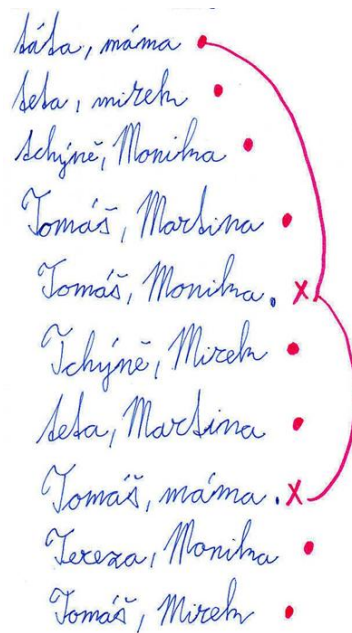 táta, máma
teta, mirek
tchýně, Monika
Tomáš, Martina
Tomáš, Monika. x
Tchýně, Mirek
teta, Martina
Tomáš, máma. x
Tereza, Monika
Tomáš, Mirek